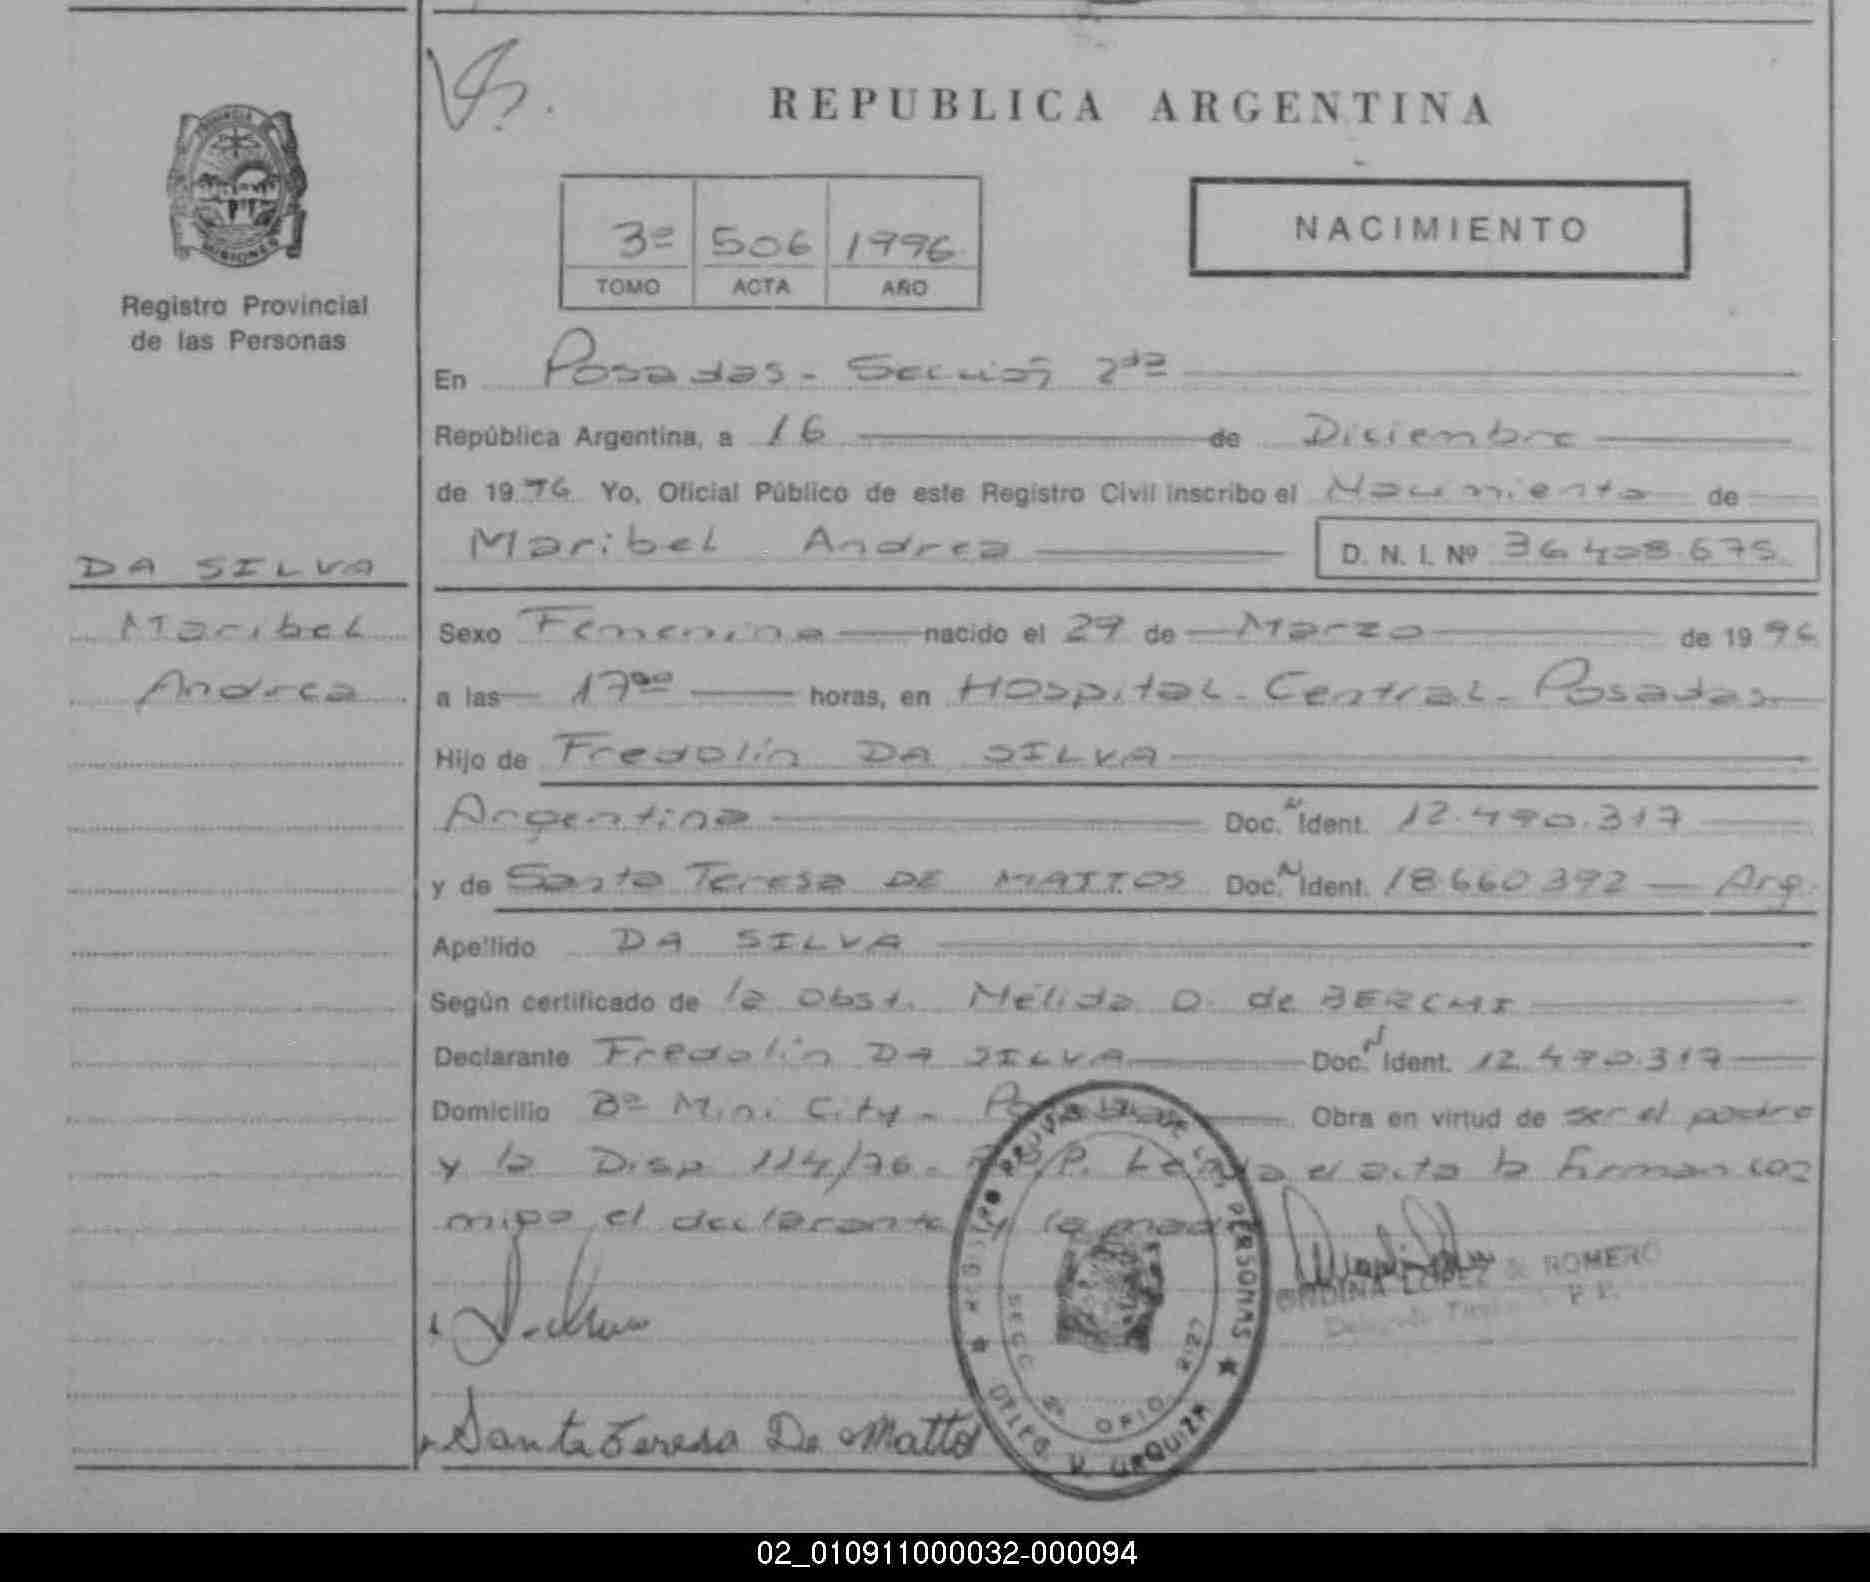 REPUBLICA ARGENTINA
PROVINCIA
MISIONES
Registro Provincial
de las Personas
3º 506 1996
TOMO ACTA AÑO
NACIMIENTO
En Posadas - Sección 2da
República Argentina, a 16 de Diciembre
de 1996 Yo, Oficial Público de este Registro Civil inscribo el Nacimiento de
Maribel Andrea D. N. I. Nº 36.408.675.
DA SILVA
Maribel
Andrea
Sexo Femenino nacido el 29 de Marzo de 1996
a las 17 00 horas, en Hospital - Central - Posadas
Hijo de Fredolin DA SILVA
Argentina Doc. N Ident. 12.490.317
y de Santa Teresa DE MATTOS Doc. N Ident. 18.660.392 - Arg.
Apellido DA SILVA
Según certificado de la Obst. Mélida O. de
Declarante Fredolin DA SILVA Doc. N Ident. 12.490.317
Domicilio Bº Mini City - Posadas Obra en virtud de ser el padre
y la Disp 114/96 - Leída el acta la firman con
migo el declarante y la madre
LOPEZ de ROMERO
REGISTRO PROVINCIAL DE LAS PERSONAS
SECC 2ª OFIC
DELEG V. URQUIZA
Santa Teresa De Mattos
02_010911000032-000094